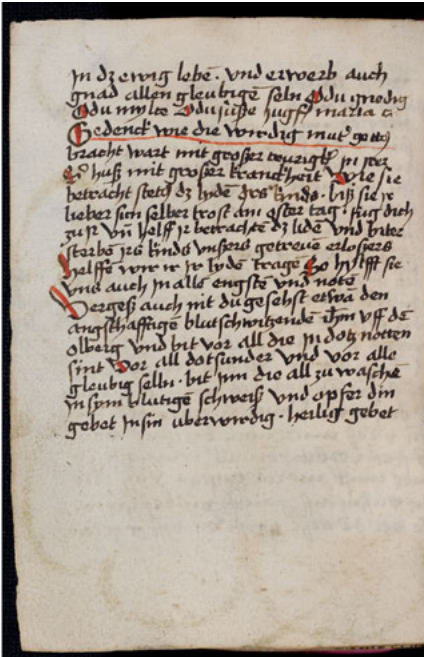 in dz ewig lebē · vnd erwerb auch
gnad allen gleubigē seln O du gnedig
O du mylte O du süsse jugfr̄ maria
Gedenck wie die wirdig mut' gottz
bracht wart mit grosser trurigk in jrer
huß mit grosser kranckheit Wie sie
betracht stetz dz lydē jrs kinds · biß sie jr
lieber sun selber trost am oster tag · fug dich
zu jr vn̄ helff jr betrachtē dz lidē vnd biter
sterbē jrs kinds vnsers getreuē erlosers
helffe wir jr jr lydē tragē So hylfft sie
vns auch in alle engstē vnd notē
Vergeß auch nit du gesehst etwā den
angsthafftigē blutschwitzende Jhm̄ vff dē
olberg vnd bit vor all die in dotz notten
sint Vor all dotsunder vnd vor alle
gleubig seln · bit inn die all zu waschē
in sym blutigē schweiß vnd opfer din
gebet in sin uberwirdig · heilig gebet